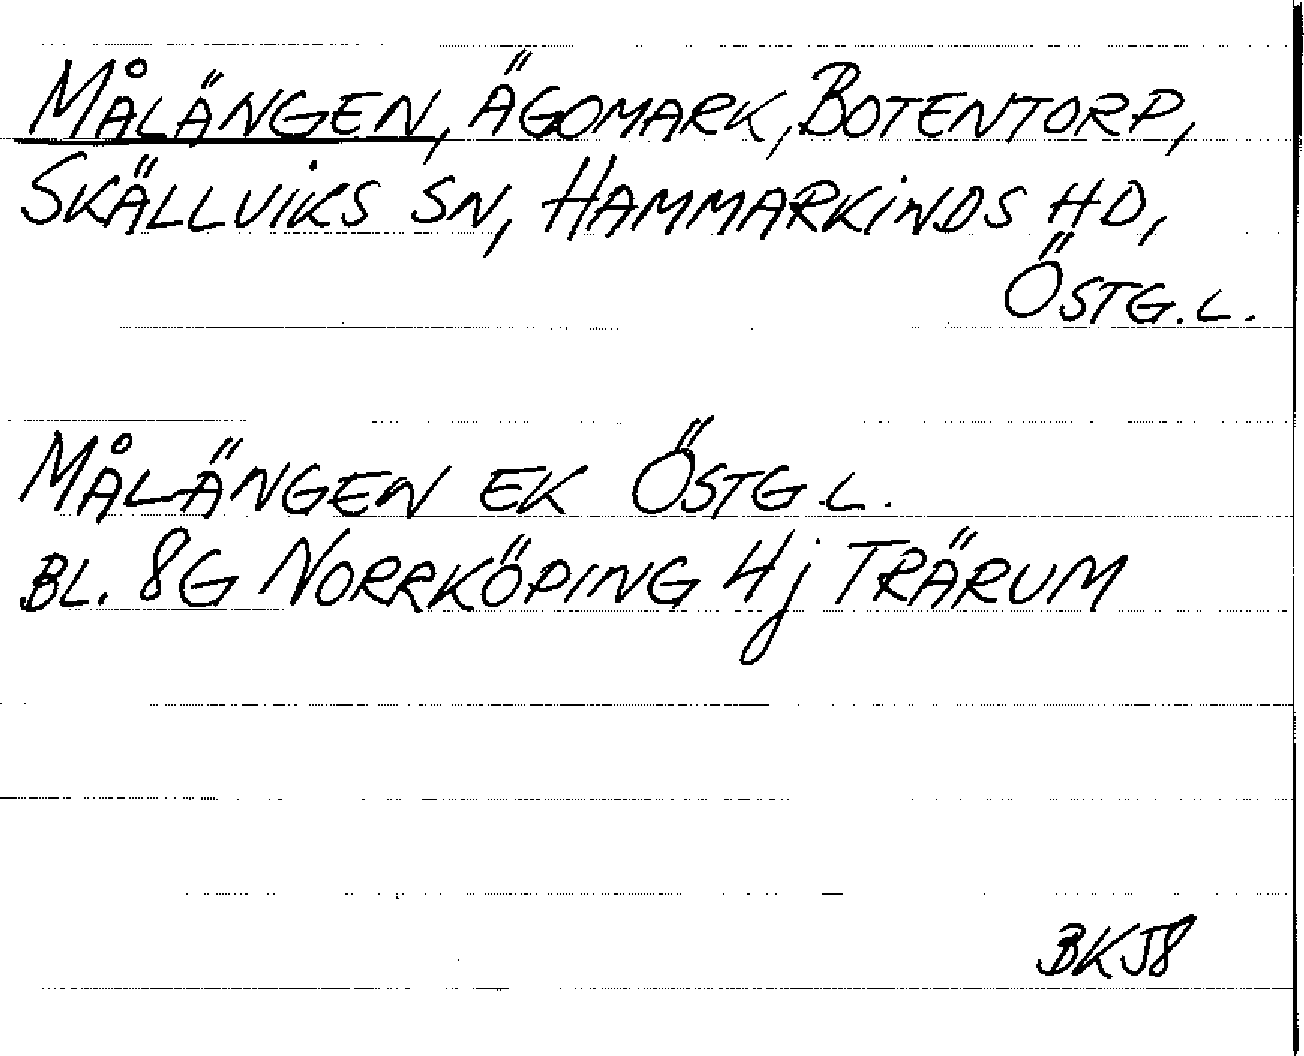 MÅLÄNGEN, ÄGOMARK, BOTENTORP,
SKÄLLVIKS SN, HAMMARKINDS HD,
ÖSTG.L.
MÅLÄNGEN EK ÖSTG.L.
BL. 8G NORRKÖPING 4j TRÄRUM
BKJ8